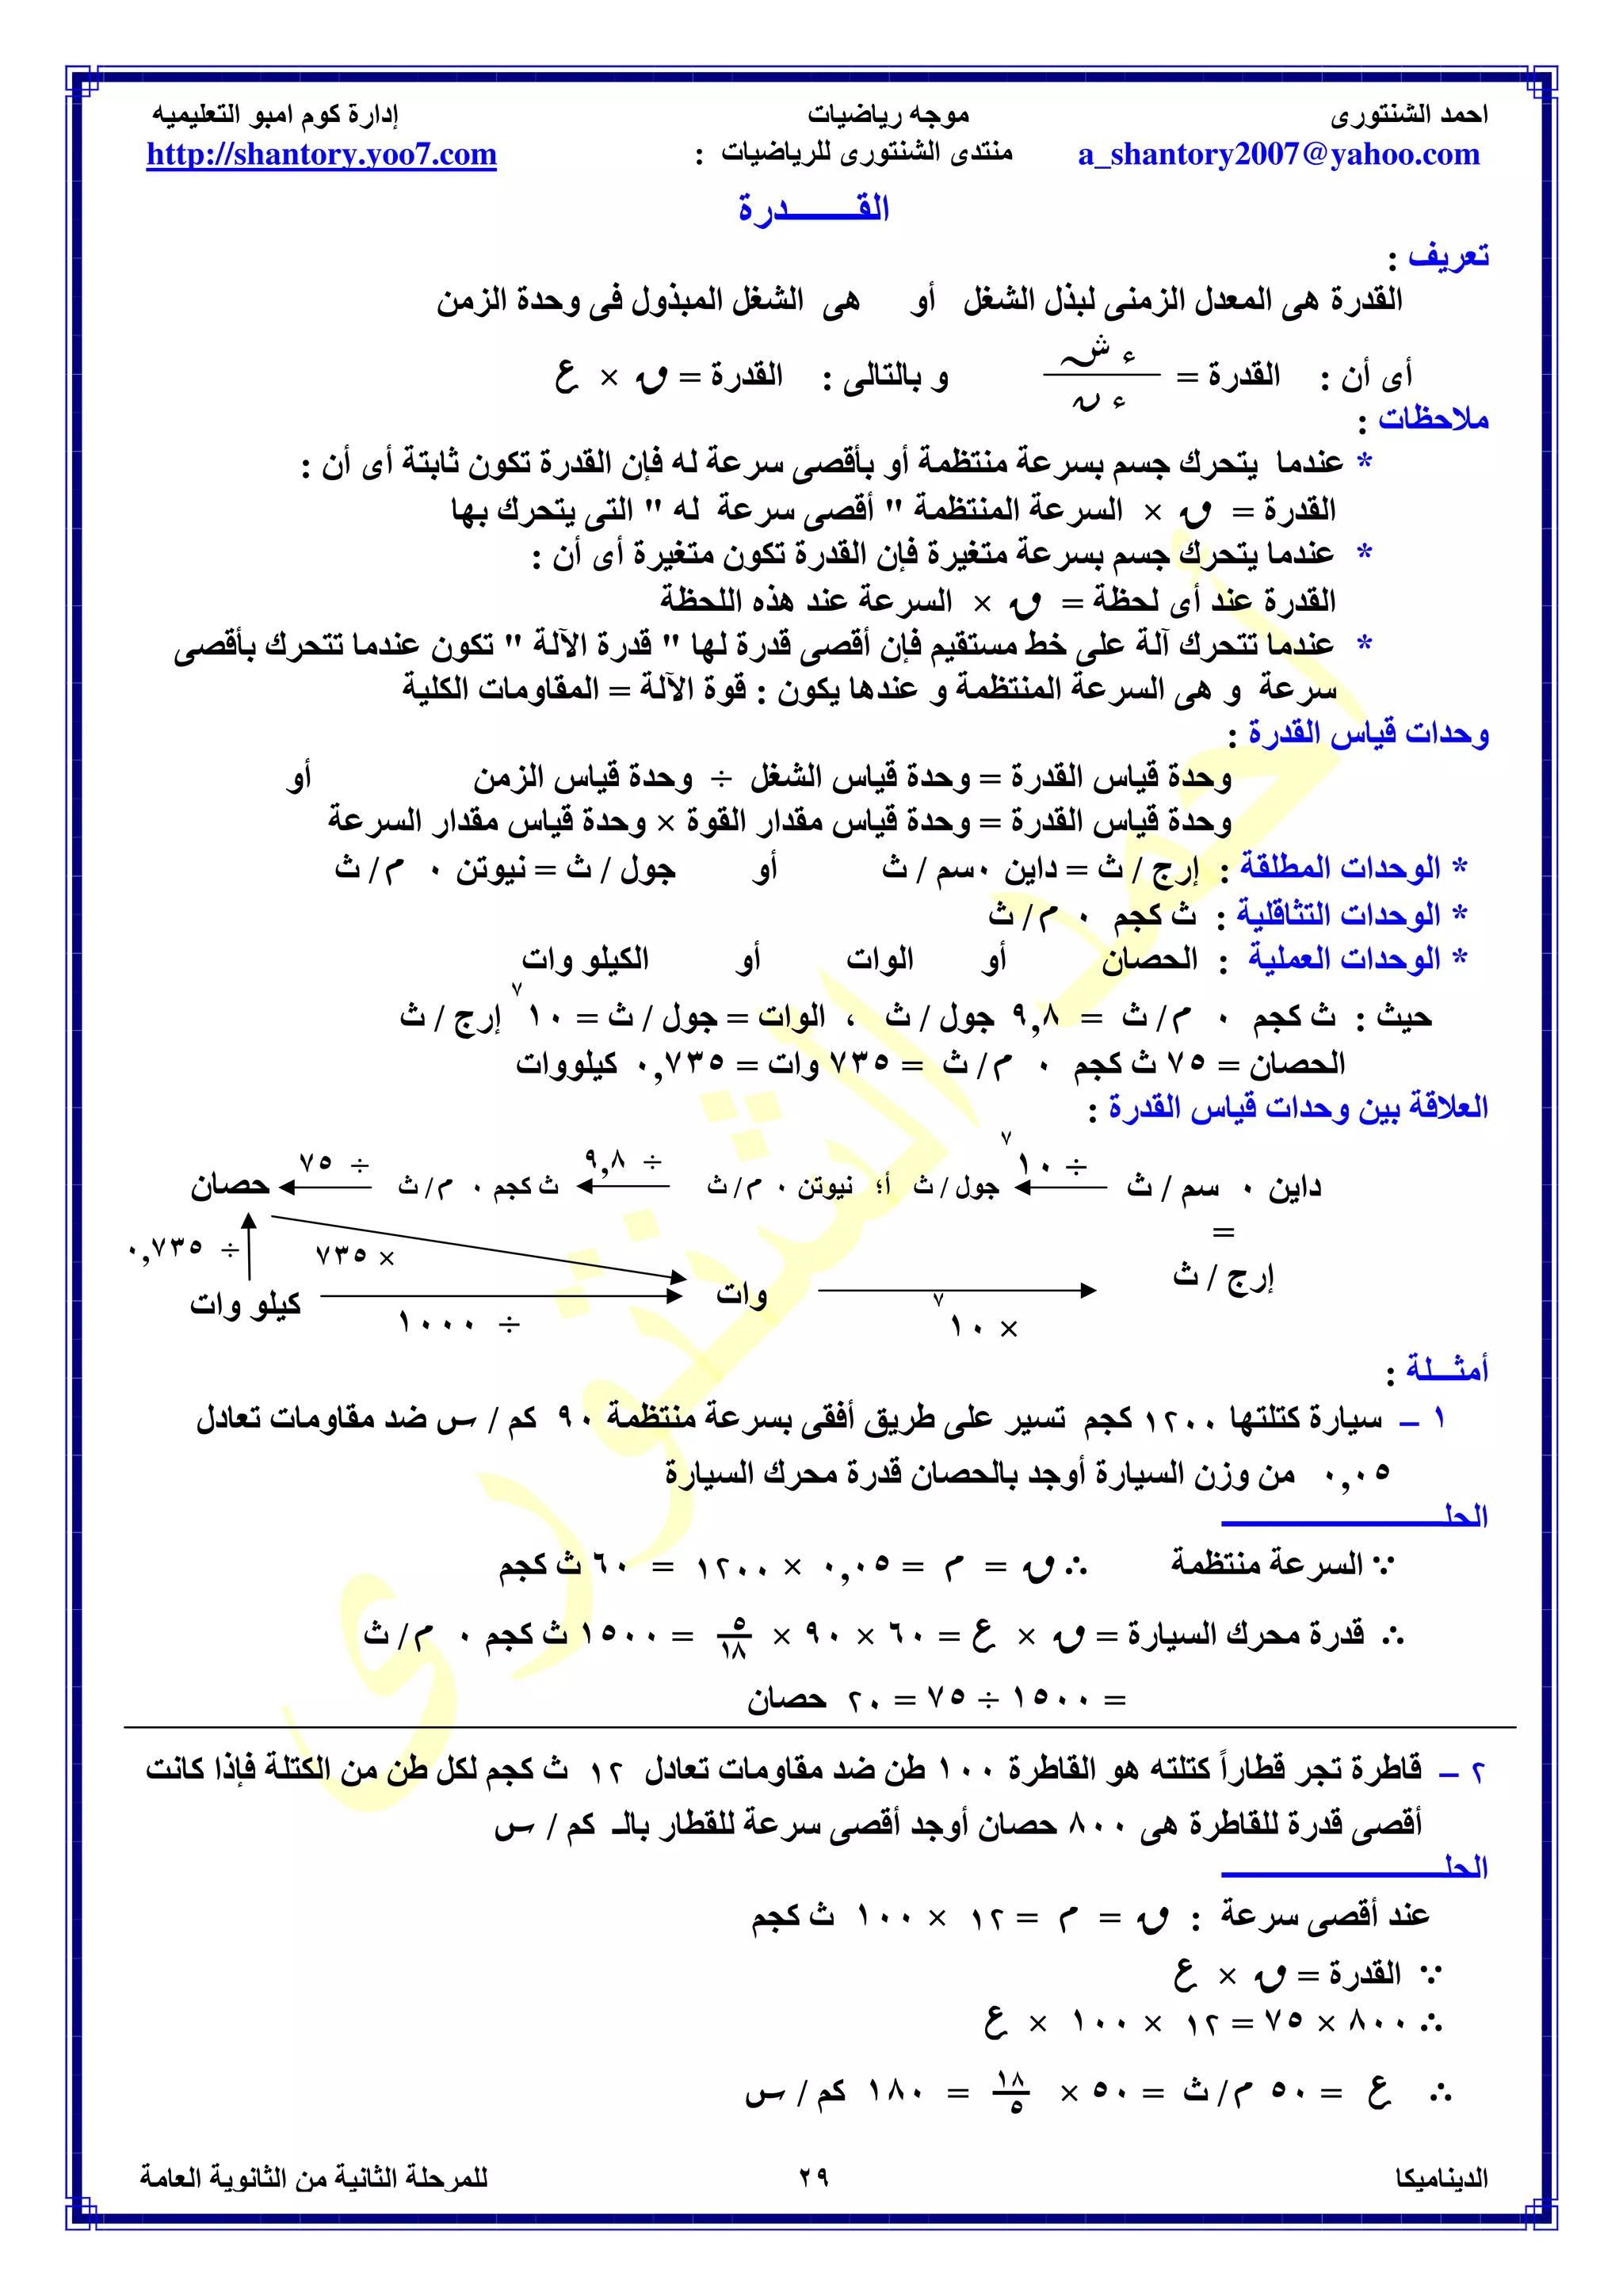 احمد الشنتورى موجه رياضيات إدارة كوم امبو التعليميه
a_shantory2007@yahoo.com منتدى الشنتورى للرياضيات : http://shantory.yoo7.com
القــــــدرة
تعريف :
القدرة هى المعدل الزمنى لبذل الشغل أو هى الشغل المبذول فى وحدة الزمن
أى أن : القدرة = ء ش / ء ن و بالتالى : القدرة = ق × ع
ملاحظات :
* عندما يتحرك جسم بسرعة منتظمة أو بأقصى سرعة له فإن القدرة تكون ثابتة أى أن :
القدرة = ق × السرعة المنتظمة " أقصى سرعة له " التى يتحرك بها
* عندما يتحرك جسم بسرعة متغيرة فإن القدرة تكون متغيرة أى أن :
القدرة عند أى لحظة = ق × السرعة عند هذه اللحظة
* عندما تتحرك آلة على خط مستقيم فإن أقصى قدرة لها " قدرة الآلة " تكون عندما تتحرك بأقصى
سرعة و هى السرعة المنتظمة و عندها يكون : قوة الآلة = المقاومات الكلية
وحدات قياس القدرة :
وحدة قياس القدرة = وحدة قياس الشغل ÷ وحدة قياس الزمن أو
وحدة قياس القدرة = وحدة قياس مقدار القوة × وحدة قياس مقدار السرعة
* الوحدات المطلقة : إرج / ث = داين ٠ سم / ث أو جول / ث = نيوتن ٠ م / ث
* الوحدات التثاقلية : ث كجم ٠ م / ث
* الوحدات العملية : الحصان أو الوات أو الكيلو وات
حيث : ث كجم ٠ م / ث = ٩,٨ جول / ث ، الوات = جول / ث = ١٠^٧ إرج / ث
الحصان = ٧٥ ث كجم ٠ م / ث = ٧٣٥ وات = ٠,٧٣٥ كيلووات
العلاقة بين وحدات قياس القدرة :
داين ٠ سم / ث ÷ ١٠^٧ جول / ث أ؛ نيوتن ٠ م / ث ÷ ٩,٨ ث كجم ٠ م / ث ÷ ٧٥ حصان
=
× ٧٣٥ ÷ ٠,٧٣٥
إرج / ث
وات كيلو وات
× ١٠^٧ ÷ ١٠٠٠
أمثـــلة :
١ – سيارة كتلتها ١٢٠٠ كجم تسير على طريق أفقى بسرعة منتظمة ٩٠ كم / س ضد مقاومات تعادل
٠,٠٥ من وزن السيارة أوجد بالحصان قدرة محرك السيارة
الحلـــــــــــــــــــــــ
∵ السرعة منتظمة ∴ ق = م = ٠,٠٥ × ١٢٠٠ = ٦٠ ث كجم
∴ قدرة محرك السيارة = ق × ع = ٦٠ × ٩٠ × ٥/١٨ = ١٥٠٠ ث كجم ٠ م / ث
= ١٥٠٠ ÷ ٧٥ = ٢٠ حصان
٢ – قاطرة تجر قطاراً كتلته هو القاطرة ١٠٠ طن ضد مقاومات تعادل ١٢ ث كجم لكل طن من الكتلة فإذا كانت
أقصى قدرة للقاطرة هى ٨٠٠ حصان أوجد أقصى سرعة للقطار بالـ كم / س
الحلـــــــــــــــــــــــ
عند أقصى سرعة : ق = م = ١٢ × ١٠٠ ث كجم
∵ القدرة = ق × ع
∴ ٨٠٠ × ٧٥ = ١٢ × ١٠٠ × ع
∴ ع = ٥٠ م / ث = ٥٠ × ١٨/٥ = ١٨٠ كم / س
الديناميكا ٢٩ للمرحلة الثانية من الثانوية العامة
أحمد الشنتورى